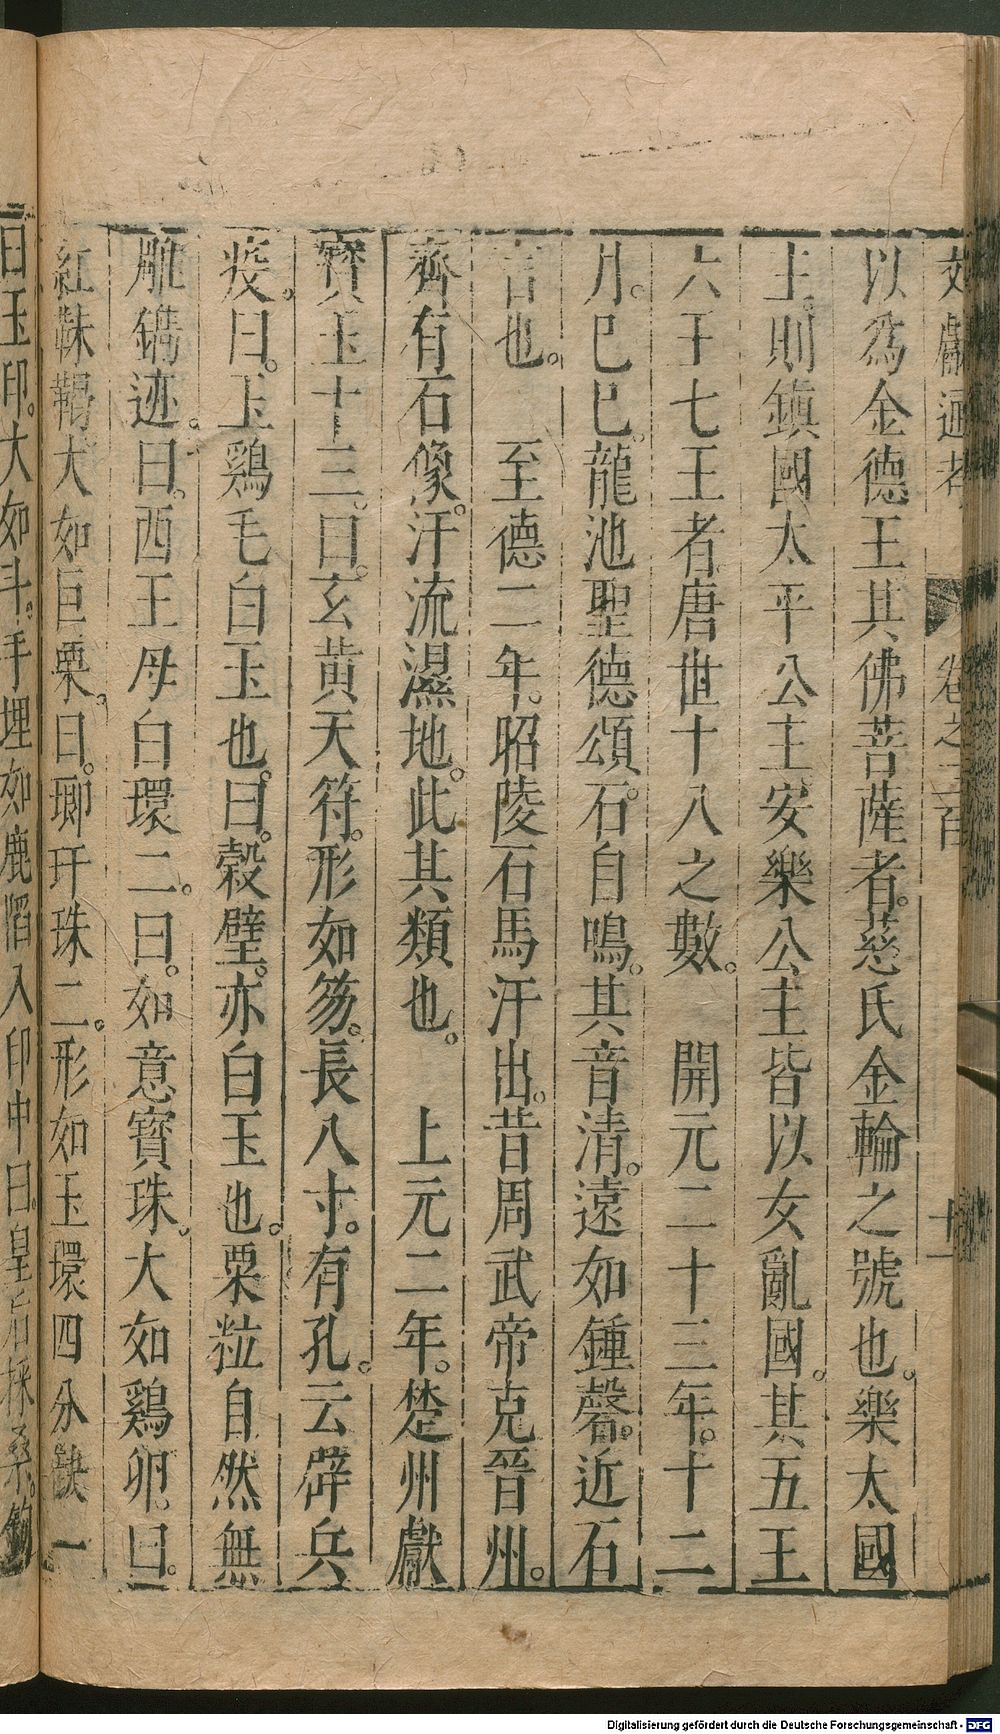 文獻通考 卷之三百 十一
以爲金德王其佛菩薩者。慈氏金輪之號也。樂太國
主。則鎮國太平公主安樂公主皆以女亂國。其五王
六子七王者。唐世十八之數。 開元二十三年。十二
月。巳巳。龍池聖德頌石。自鳴。其音清。遠如鍾磬。近石
言也。 至德二年。昭陵石馬汗出。昔周武帝克晉州。
齊有石像。汗流濕地。此其類也。 上元二年。楚州獻
寶玉十三。曰。玄黃天符。形如笏。長八寸。有孔。云辟兵
疫。曰。玉鷄毛白玉也。曰。穀璧。亦白玉也。粟粒自然無
雕鐫迹。曰。西王母白環二。曰。如意寶珠。大如鷄卵。曰。
紅靺鞨大如巨栗。曰。瑯玕珠二。形如玉環四分缺一
曰玉印。大如斗。手理如鹿陷入印中曰。皇后採桑。鉤
Digitalisierung gefördert durch die Deutsche Forschungsgemeinschaft - DFG